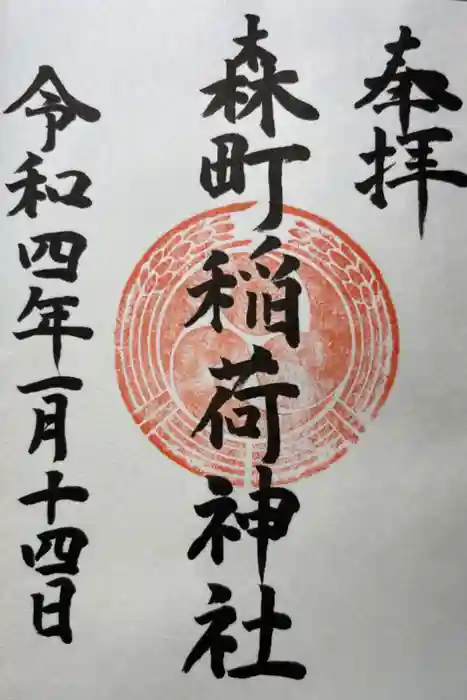 奉拝
森町稲荷神社
令和四年一月十四日